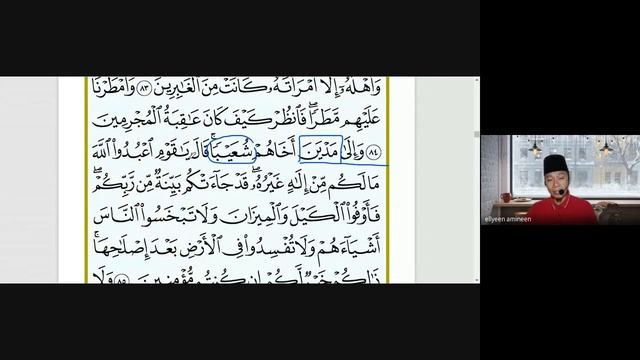 وَأَهْلَهُۥٓ إِلَّا ٱمْرَأَتَهُۥ كَانَتْ مِنَ ٱلْغَٰبِرِينَ ٨٣ وَأَمْطَرْنَا
عَلَيْهِم مَّطَرًاۖ فَٱنظُرْ كَيْفَ كَانَ عَٰقِبَةُ ٱلْمُجْرِمِينَ
٨٤ وَإِلَىٰ مَدْيَنَ أَخَاهُمْ شُعَيْبًاۚ قَالَ يَٰقَوْمِ ٱعْبُدُوا۟ ٱللَّهَ
مَا لَكُم مِّنْ إِلَٰهٍ غَيْرُهُۥۖ قَدْ جَآءَتْكُم بَيِّنَةٌ مِّن رَّبِّكُمْۖ
فَأَوْفُوا۟ ٱلْكَيْلَ وَٱلْمِيزَانَ وَلَا تَبْخَسُوا۟ ٱلنَّاسَ
أَشْيَآءَهُمْ وَلَا تُفْسِدُوا۟ فِى ٱلْأَرْضِ بَعْدَ إِصْلَٰحِهَاۚ
ذَٰلِكُمْ خَيْرٌ لَّكُمْ إِن كُنتُم مُّؤْمِنِينَ ٨٥ وَلَا
ellyeen amineen